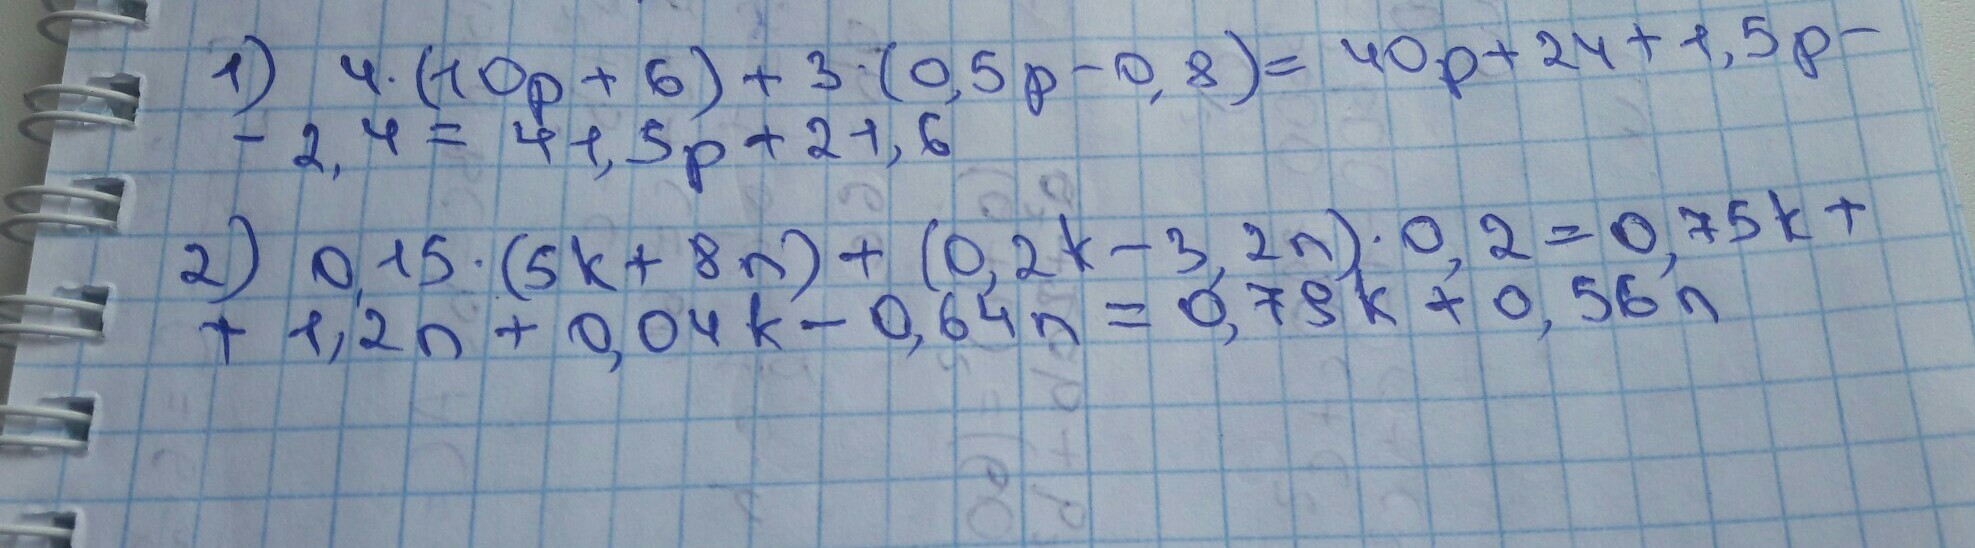 1) 4·(10p+6)+3·(0,5p-0,8)=40p+24+1,5p-
-2,4=41,5p+21,6
2) 0,15·(5k+8n)+(0,2k-3,2n)·0,2=0,75k+
+1,2n+0,04k-0,64n=0,79k+0,56n